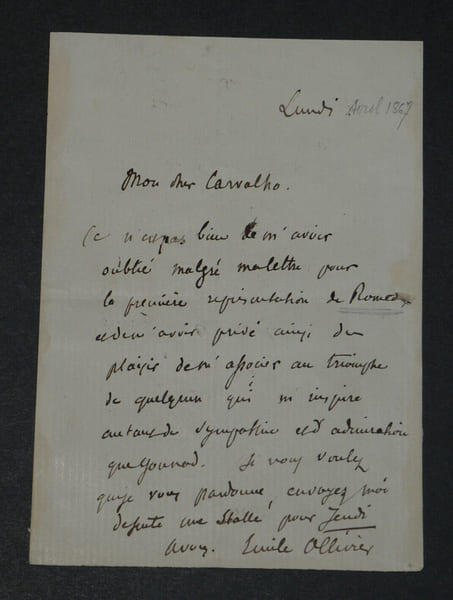 Lundi Avril 1867
Mon cher Carvalho.
Ce n'est pas bien de m'avoir
oublié malgré ma lettre pour
la première représentation de Romeo
et de m'avoir privé ainsi du
plaisir de m'associer au triomphe
de quelqu'un qui m'inspire
autant de sympathie et d'admiration
que Gounod. Si vous voulez
que je vous pardonne, envoyez moi
de suite une Stalle pour Jeudi
Emile Ollivier